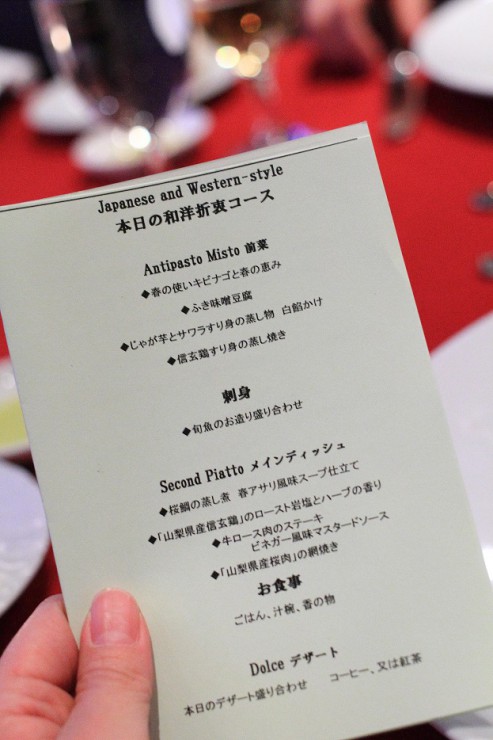 Japanese and Western-style
本日の和洋折衷コース
Antipasto Misto 前菜
◆春の使いキビナゴと春の恵み
◆ふき味噌豆腐
◆じゃが芋とサワラすり身の蒸し物 白餡かけ
◆信玄鶏すり身の蒸し焼き
刺身
◆旬魚のお造り盛り合わせ
Second Piatto メインディッシュ
◆桜鯛の蒸し煮 春アサリ風味スープ仕立て
◆「山梨県産信玄鶏」のロースト岩塩とハーブの香り
◆牛ロース肉のステーキ
ビネガー風味マスタードソース
◆「山梨県産桜肉」の網焼き
お食事
ごはん、汁椀、香の物
Dolce デザート
本日のデザート盛り合わせ コーヒー、又は紅茶